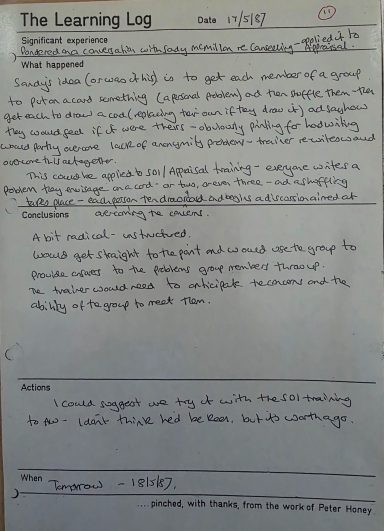 The Learning Log Date 17/5/87 11
Significant experience - applied it to
Pondered on a conversation with Sandy McMillan re Counselling Appraisal.
What happened
Sandy's idea (or was it his) is to get each member of a group
to put on a card something (a personal problem) ad then shuffle them - then
get each to draw a card (replacing their own if they draw it) ad say how
they would feel if it were theirs - obviously printing for handwriting
would partly overcome lack of anonymity problem - trainer rewrites would
overcome this altogether.
This could be applied to SDI/Appraisal training - everyone writes a
problem they envisage on a card - or two, or even three - ad a shuffling
takes place - each person then draws a card and begins a discussion aimed at
Conclusions overcoming the concerns.
A bit radical - unstructured.
Would get straight to the point and would use the group to
provide answers to the problems group members throw up.
The trainer would need to anticipate the concerns and the
ability of the group to meet them.
Actions
I could suggest we try it with the SDI training
to - I don't think he'd be keen, but its worth a go.
When Tomorrow - 18/5/87.
.... pinched, with thanks, from the work of Peter Honey